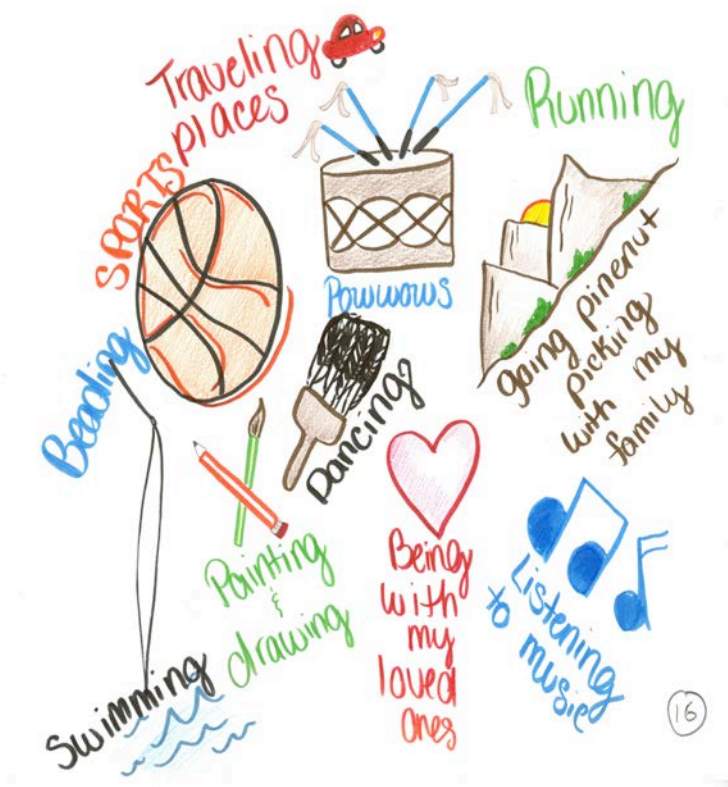 Traveling
places
Running
SPORTS
Powwows
Beading
going pinenut
picking
with my
family
Dancing
Painting
&
drawing
Being
with
my
loved
ones
Listening
to music
Swimming
16